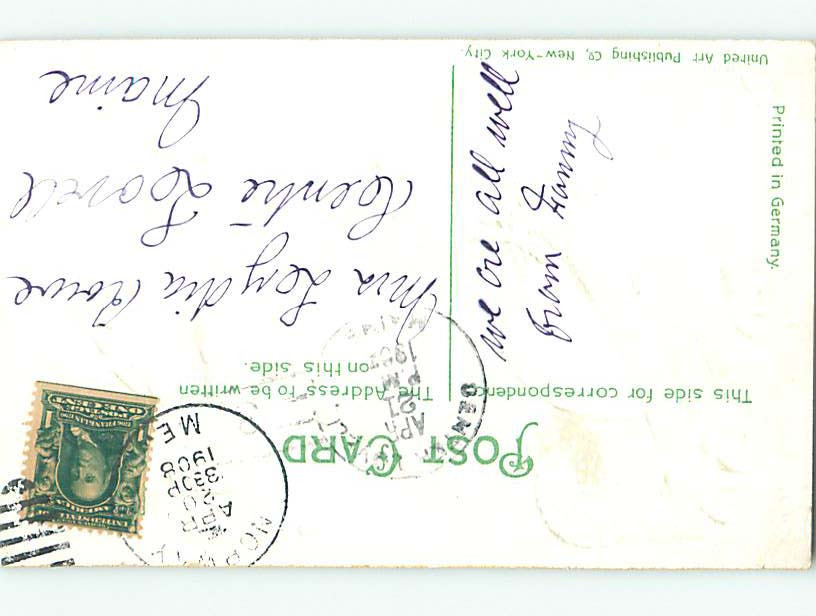 POST CARD
This side for correspondence
The Address to be written
on this side.
we are all well
from Fanny
Mrs Leydia Rowe
Centre Lovell
Maine
APR
20
330P
1908
ME
APR
21
M
CENT
MAINE
POSTAGE
ONE CENT
1
Printed in Germany.
United Art Publishing Co, New-York City.